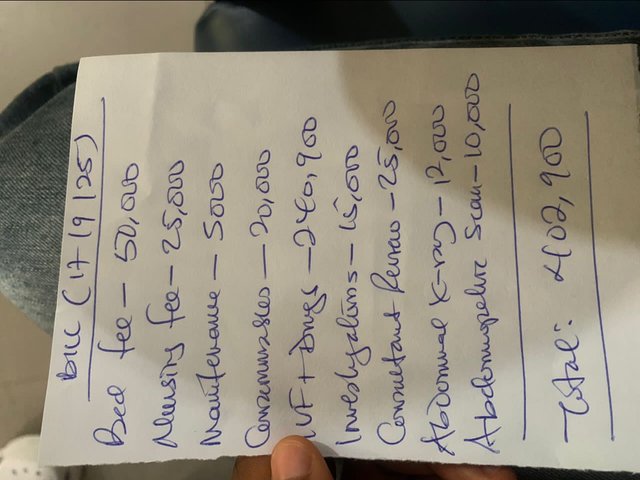 Bill (17/9/25)
Bed fee – 50,000
Nursing fee – 25,000
Maintenance – 5000
Consumables – 20,000
IVF + Drugs – 240,900
Investigations – 15,000
Consultant Review – 25,000
Abdominal X-ray – 12,000
Abdominopelvic Scan – 10,000
Total: 402,900